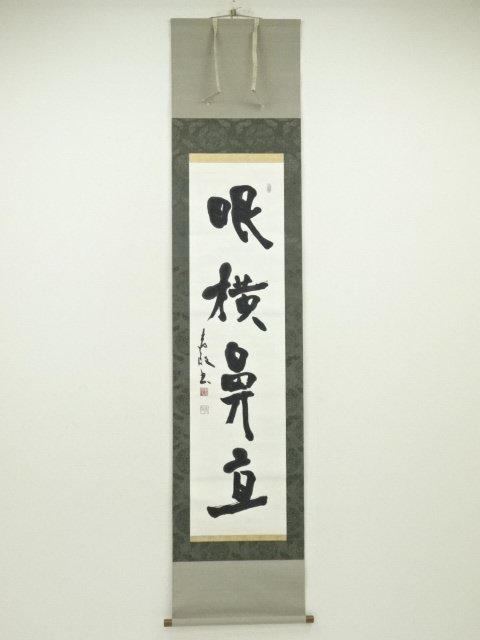 眼横鼻直
書